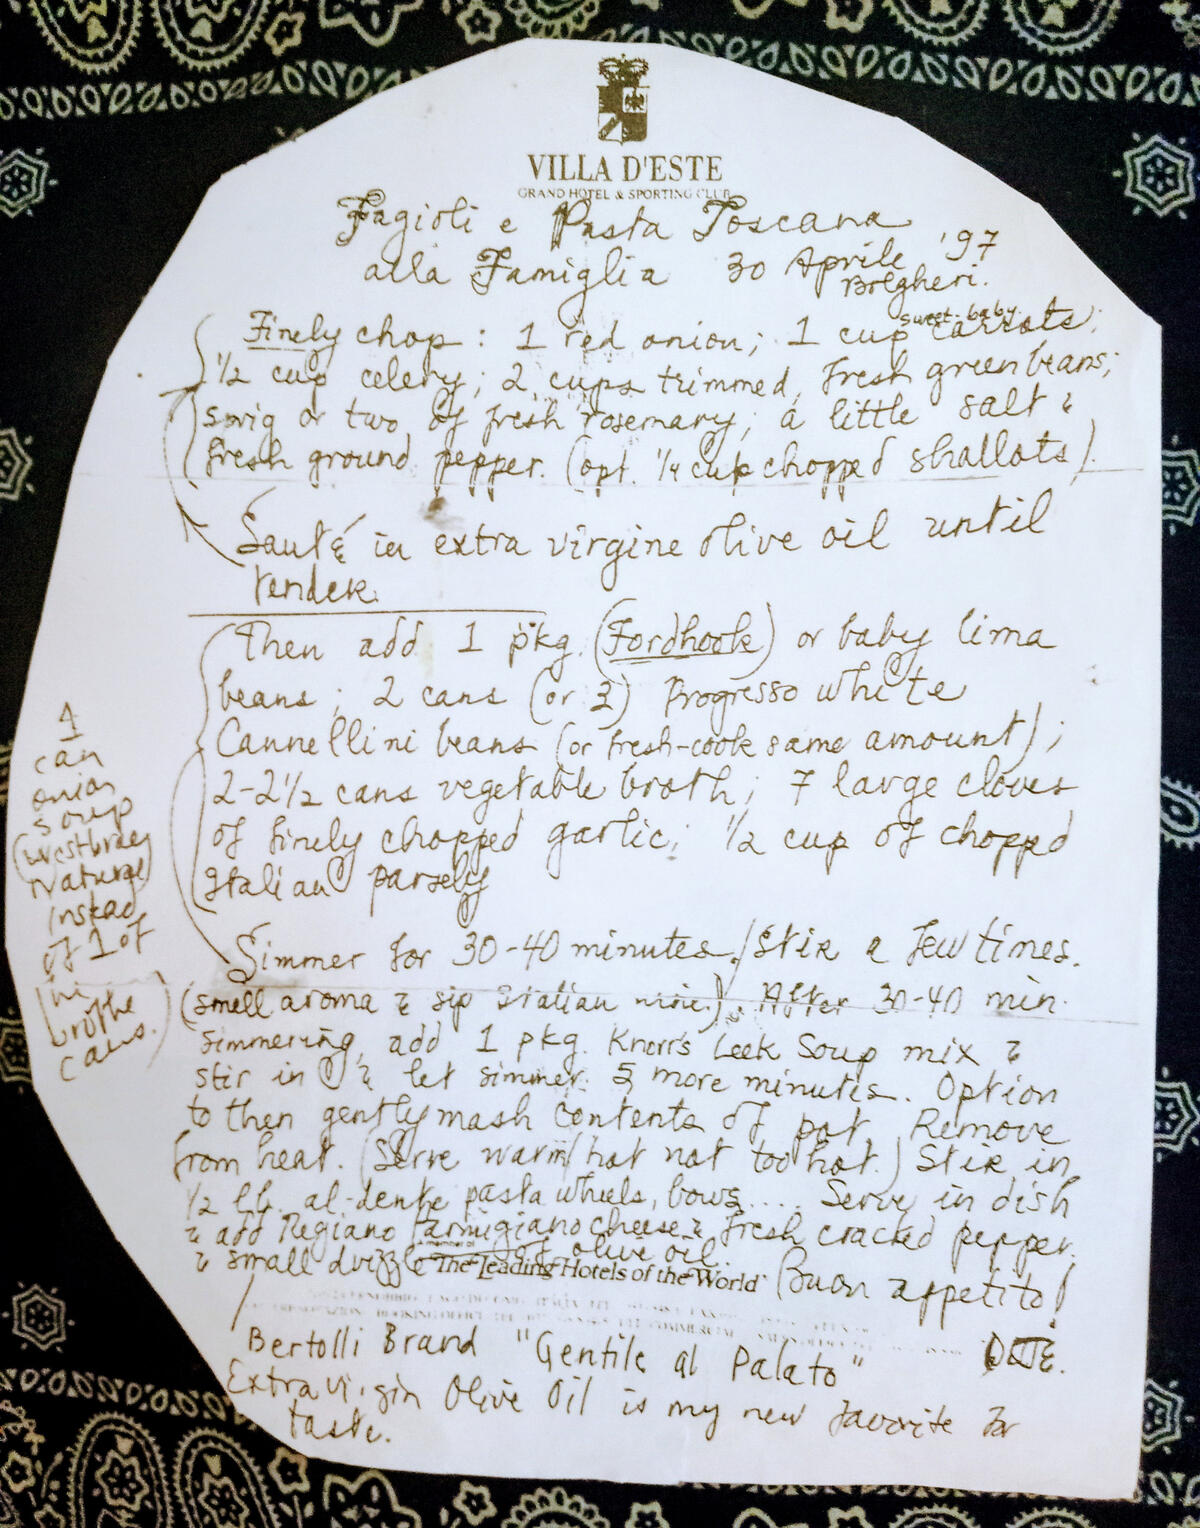 VILLA D'ESTE
GRAND HOTEL & SPORTING CLUB
Fagioli e Pasta Toscana
alla Famiglia 30 Aprile '97
Bolgheri.
Finely chop: 1 red onion; 1 cup sweet baby carrots;
1/2 cup celery; 2 cups trimmed, fresh green beans;
sprig or two of fresh rosemary; a little salt &
fresh ground pepper. (opt. 1/4 cup chopped shallots).
Sauté in extra virgine olive oil until
tender.
Then add 1 pkg. (Fordhook) or baby lima
beans; 2 cans (or 3) Progresso white
Cannellini beans (or fresh-cook same amount);
2-2 1/2 cans vegetable broth; 7 large cloves
of finely chopped garlic; 1/2 cup of chopped
Italian parsely
1
can
onion
soup
(Westbrae
Natural)
instead
of 1 of
the
brothe
cans.)
Simmer for 30-40 minutes. / Stir a few times.
(smell aroma & sip Italian wine.) After 30-40 min.
simmering, add 1 pkg. Knorr's Leek Soup mix &
stir in & let simmer 5 more minutes. Option
to then gently mash contents of pot. Remove
from heat. (Serve warm/hot not too hot.) Stir in
1/2 lb. al-dente pasta wheels, bows.... Serve in dish
& add Regiano Parmigiano cheese & fresh cracked pepper
& small drizzle of olive oil. Buon appetito!
A member of
The Leading Hotels of the World
Bertolli Brand "Gentile al Palato"
Extra virgin Olive Oil is my new favorite for
taste.